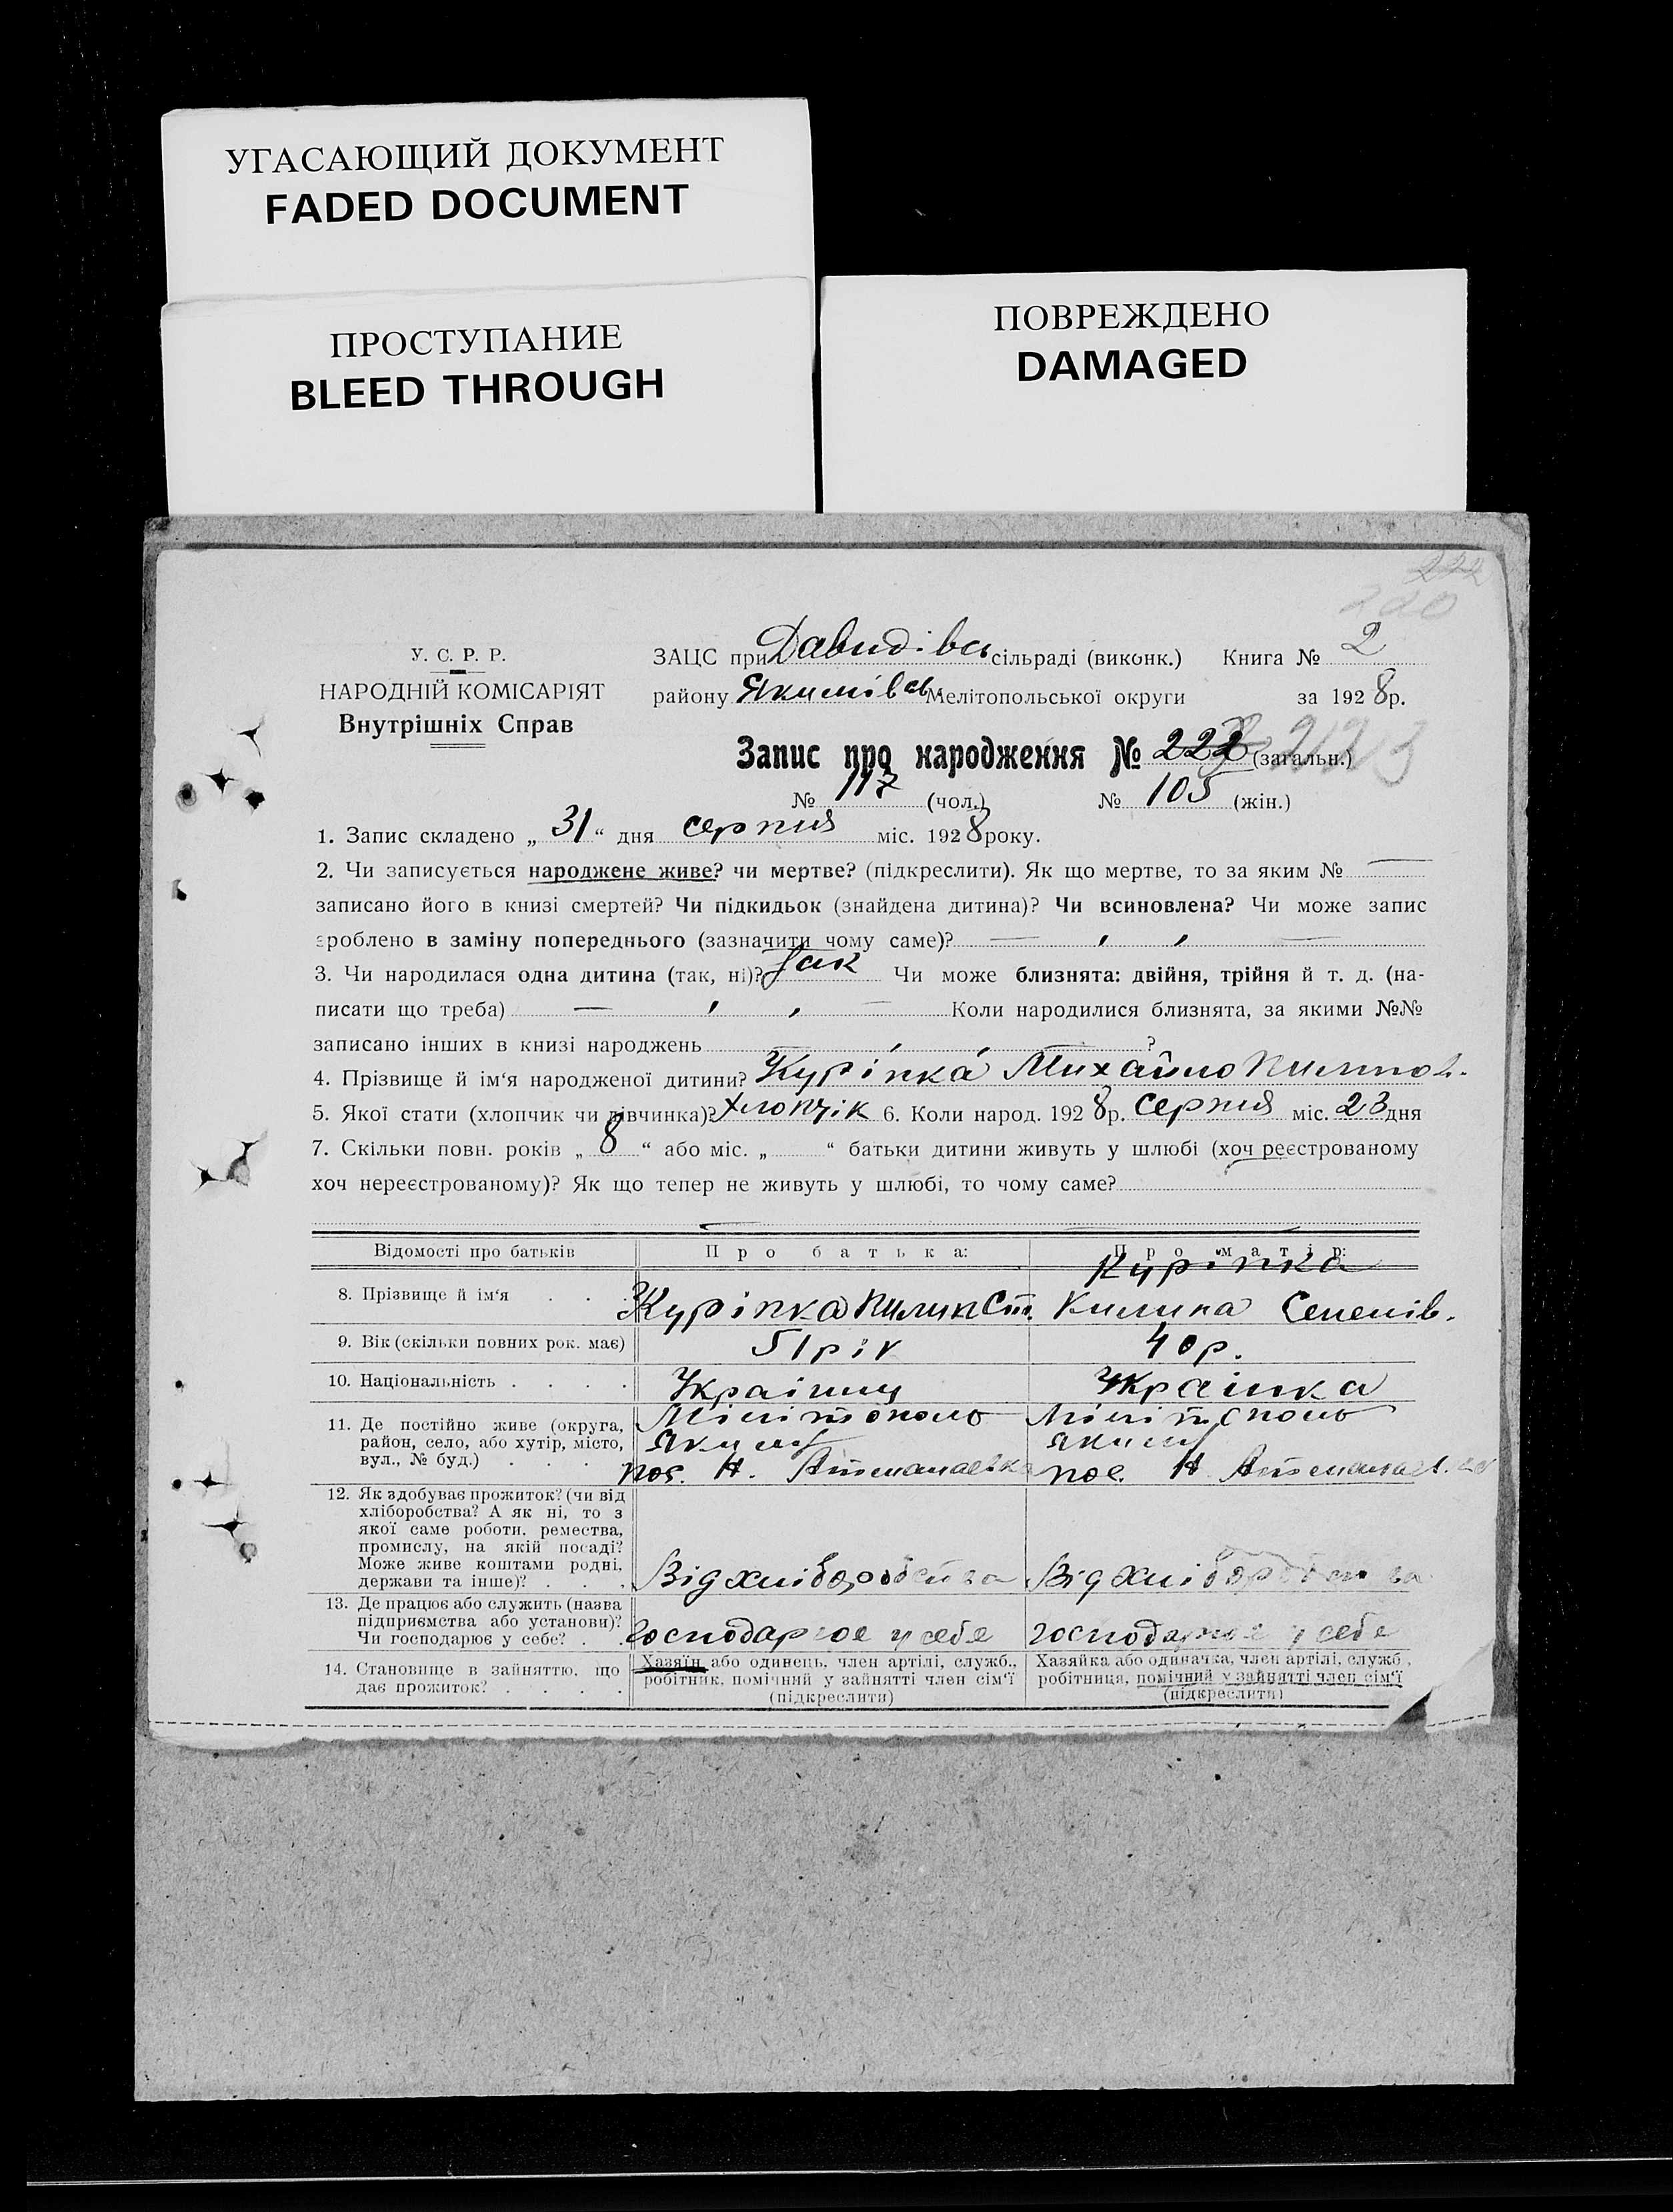 УГАСАЮЩИЙ ДОКУМЕНТ
FADED DOCUMENT
ПРОСТУПАНИЕ
BLEED THROUGH
ПОВРЕЖДЕНО
DAMAGED
222
220
У. С. Р. Р.
НАРОДНІЙ КОМІСАРІЯТ
Внутрішніх Справ
ЗАЦС при Давидівсь сільраді (виконк.) Книга № 2
району Якимівсь Мелітопольської округи за 1928р.
Запис про народження № 222 (загальн.) 213
№ 117 (чол.) № 105 (жін.)
1. Запис складено „ 31 “ дня серпня міс. 1928 року.
2. Чи записується народжене живе? чи мертве? (підкреслити). Як що мертве, то за яким №
записано його в книзі смертей? Чи підкидьок (знайдена дитина)? Чи всиновлена? Чи може запис
зроблено в заміну попереднього (зазначити чому саме)?
3. Чи народилася одна дитина (так, ні)? Так Чи може близнята: двійня, трійня й т. д. (на-
писати що треба) Коли народилися близнята, за якими №№
записано інших в книзі народжень ?
4. Прізвище й ім‘я народженої дитини? Курінка Михайло Пилипов.
5. Якої стати (хлопчик чи дівчинка)? хлопчік 6. Коли народ. 1928р. Серпня міс. 23 дня
7. Скільки повн. років „ 8 “ або міс. „ “ батьки дитини живуть у шлюбі (хоч реєстрованому
хоч нереєстрованому)? Як що тепер не живуть у шлюбі, то чому саме?
Відомості про батьків Про батька: Про матір:
Курінка
8. Прізвище й ім‘я Курінка Пилип Ст. Килина Семенів.
9. Вік (скільки повних рок. має) 51 рік 40 р.
10. Національність Українц Українка
11. Де постійно живе (округа, Мілітополь Мілітополь
район, село, або хутір, місто, Яким Яким
вул., № буд.) пос. Н. Атманаевка пос. Н Атманаев.ка
12. Як здобуває прожиток? (чи від
хліборобства? А як ні, то з
якої саме роботи, ремества,
промислу, на якій посаді?
Може живе коштами родні,
держави та інше)? Від хліборобства Від хліборобства
13. Де працює або служить (назва
підприємства або установи)?
Чи господарює у себе? господарює у себе господарює у себе
14. Становище в зайняттю, що Хазяїн або одинець, член артілі, служб., Хазяйка або одиначка, член артілі, служб.,
дає прожиток? робітник, помічний у зайнятті член сім‘ї робітниця, помічний у зайнятті член сім‘ї
(підкреслити) (підкреслити)